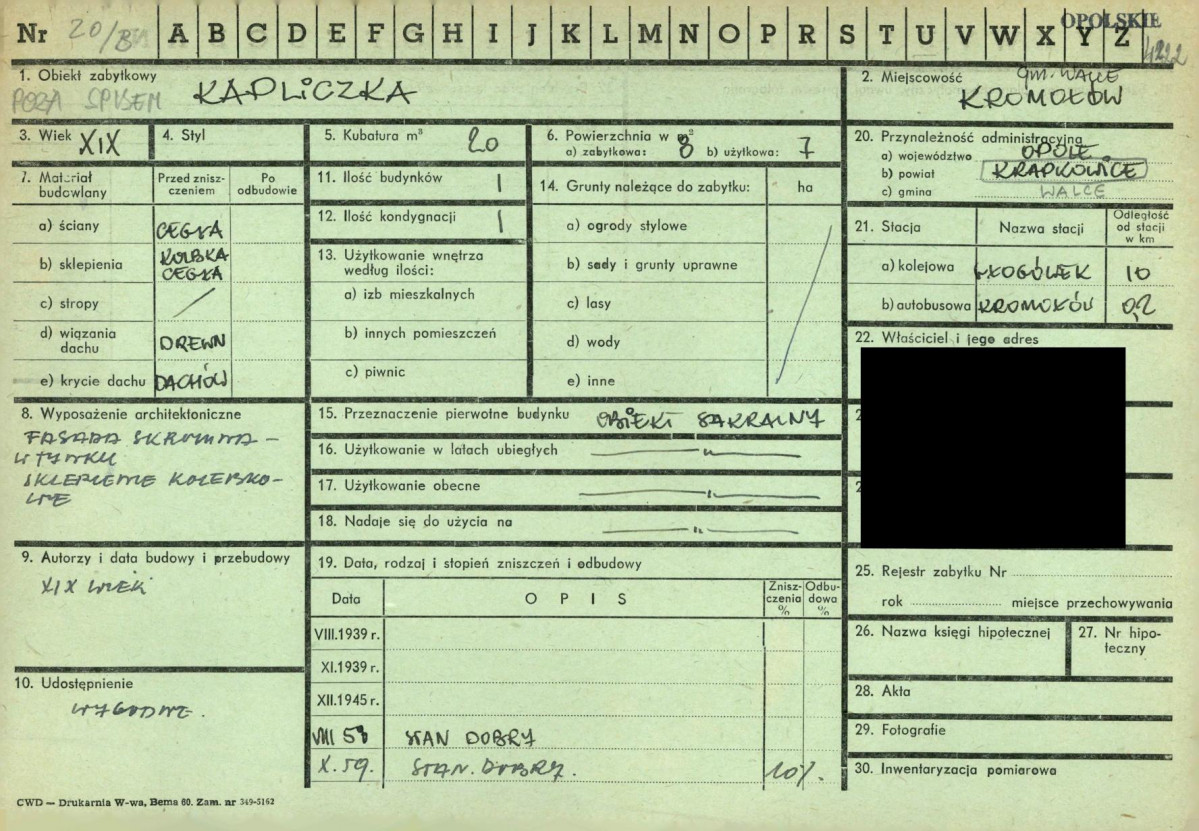 Nr 20/B A B C D E F G H I J K L M N O P R S T U V W X Y Z
OPOLSKIE
4222
1. Obiekt zabytkowy
POZA SPISEM KAPLICZKA
2. Miejscowość gm. WALCE
KROMOŁÓW
3. Wiek XIX
4. Styl
5. Kubatura m³ 20
6. Powierzchnia w m²
a) zabytkowa: 8 b) użytkowa: 7
20. Przynależność administracyjna
a) województwo OPOLE
b) powiat KRAPKOWICE
c) gmina WALCE
7. Materiał budowlany
Przed zniszczeniem
Po odbudowie
a) ściany CEGŁA
b) sklepienia KOLEBKA
CEGŁA
c) stropy /
d) wiązania dachu DREWN
e) krycie dachu DACHÓW
11. Ilość budynków 1
12. Ilość kondygnacji 1
13. Użytkowanie wnętrza
według ilości:
a) izb mieszkalnych
b) innych pomieszczeń
c) piwnic
14. Grunty należące do zabytku: ha
a) ogrody stylowe
b) sady i grunty uprawne
c) lasy
d) wody
e) inne
21. Stacja
Nazwa stacji
Odległość
od stacji
w km
a) kolejowa GŁOGÓWEK 10
b) autobusowa KROMOŁÓW 0,2
22. Właściciel i jego adres
8. Wyposażenie architektoniczne
FASADA SKROMNA –
W TYNKU
SKLEPIENIE KOLEBKO-
WE
15. Przeznaczenie pierwotne budynku OBIEKT SAKRALNY
16. Użytkowanie w latach ubiegłych —"—
17. Użytkowanie obecne —"—
18. Nadaje się do użycia na —"—
9. Autorzy i data budowy i przebudowy
XIX WIEK
10. Udostępnienie
WYGODNE.
19. Data, rodzaj i stopień zniszczeń i odbudowy
Data
OPIS
Znisz-
czenia
%
Odbu-
dowa
%
VIII.1939 r.
XI.1939 r.
XII.1945 r.
VIII 57 STAN DOBRY
X. 59. STAN. DOBRY. 10%.
25. Rejestr zabytku Nr
rok miejsce przechowywania
26. Nazwa księgi hipotecznej
27. Nr hipo-
teczny
28. Akta
29. Fotografie
30. Inwentaryzacja pomiarowa
CWD — Drukarnia W-wa, Bema 60. Zam. nr 349-5162